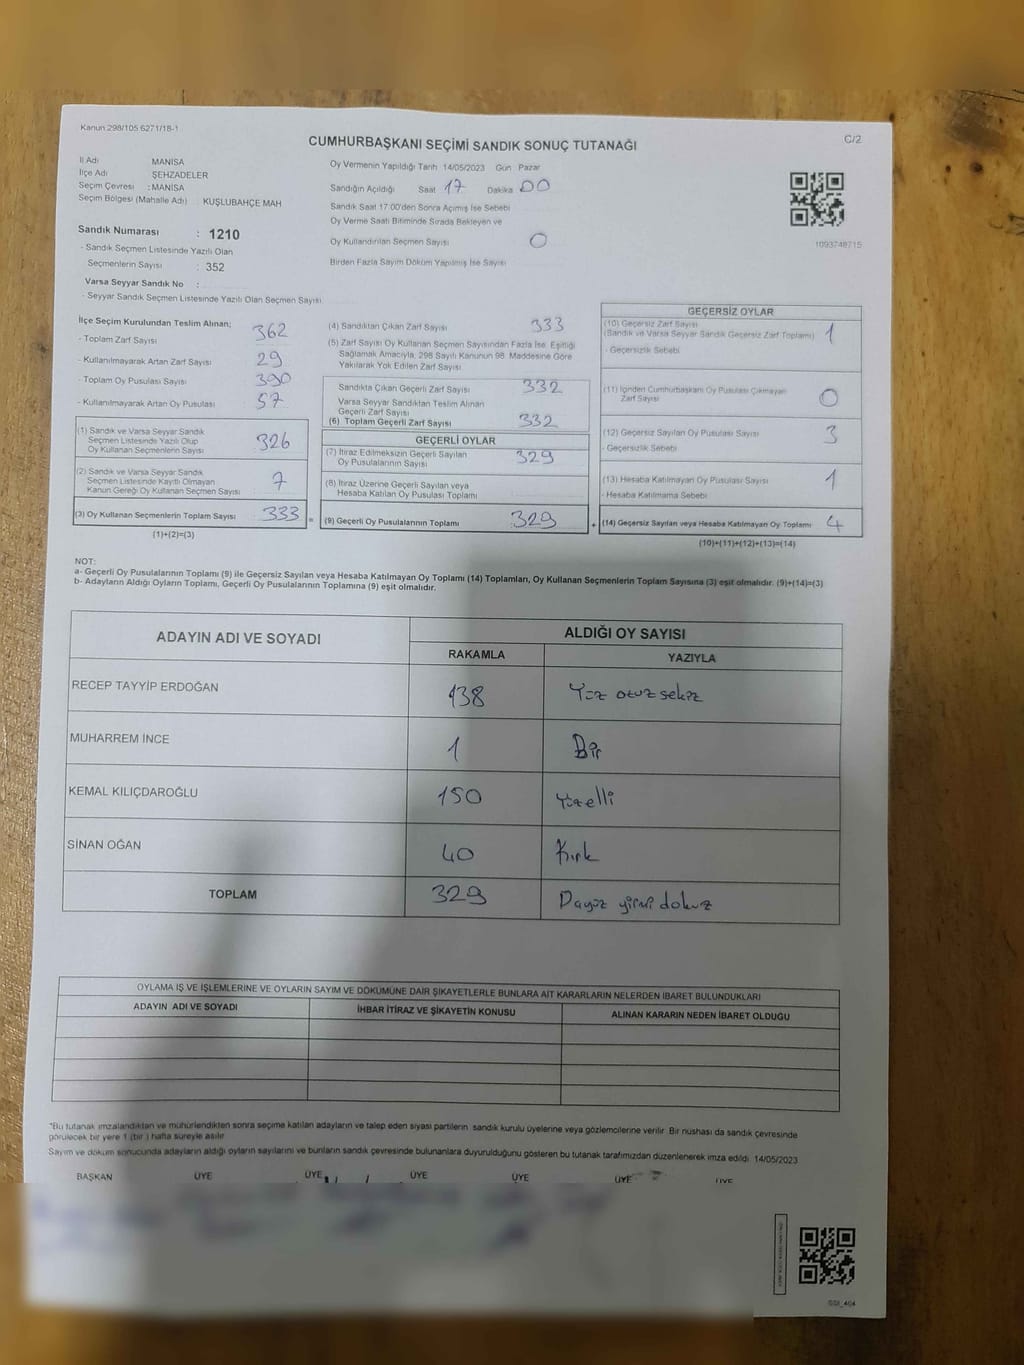 Kanun 298/105 6271/18-1
C/2
CUMHURBAŞKANI SEÇİMİ SANDIK SONUÇ TUTANAĞI
İl Adı MANİSA
İlçe Adı ŞEHZADELER
Seçim Çevresi : MANİSA
Seçim Bölgesi (Mahalle Adı) : KUŞLUBAHÇE MAH
Sandık Numarası : 1210
- Sandık Seçmen Listesinde Yazılı Olan
Seçmenlerin Sayısı : 352
Varsa Seyyar Sandık No :
- Seyyar Sandık Seçmen Listesinde Yazılı Olan Seçmen Sayısı
Oy Vermenin Yapıldığı Tarih 14/05/2023 Gün Pazar
Sandığın Açıldığı Saat 17 Dakika 00
Sandık Saat 17:00'den Sonra Açımış İse Sebebi
Oy Verme Saati Bitiminde Sırada Bekleyen ve
Oy Kullandırılan Seçmen Sayısı 0
Birden Fazla Sayım Döküm Yapılmış İse Sayısı
1093748715
İlçe Seçim Kurulundan Teslim Alınan;
- Toplam Zarf Sayısı 362
- Kullanılmayarak Artan Zarf Sayısı 29
- Toplam Oy Pusulası Sayısı 390
- Kullanılmayarak Artan Oy Pusulası 57
(1) Sandık ve Varsa Seyyar Sandık
Seçmen Listesinde Yazılı Olup
Oy Kullanan Seçmenlerin Sayısı 326
(2) Sandık ve Varsa Seyyar Sandık
Seçmen Listesinde Kayıtlı Olmayan
Kanun Gereği Oy Kullanan Seçmen Sayısı 7
(3) Oy Kullanan Seçmenlerin Toplam Sayısı 333 =
(1)+(2)=(3)
(4) Sandıktan Çıkan Zarf Sayısı 333
(5) Zarf Sayısı Oy Kullanan Seçmen Sayısından Fazla İse, Eşitliği
Sağlamak Amacıyla, 298 Sayılı Kanunun 98. Maddesine Göre
Yakılarak Yok Edilen Zarf Sayısı
Sandıkta Çıkan Geçerli Zarf Sayısı 332
Varsa Seyyar Sandıktan Teslim Alınan
Geçerli Zarf Sayısı
(6) Toplam Geçerli Zarf Sayısı 332
GEÇERLİ OYLAR
(7) İtiraz Edilmeksizin Geçerli Sayılan
Oy Pusulalarının Sayısı 329
(8) İtiraz Üzerine Geçerli Sayılan veya
Hesaba Katılan Oy Pusulası Toplamı
(9) Geçerli Oy Pusulalarının Toplamı 329 +
GEÇERSİZ OYLAR
(10) Geçersiz Zarf Sayısı
(Sandık ve Varsa Seyyar Sandık Geçersiz Zarf Toplamı) 1
- Geçersizlik Sebebi
(11) İçinden Cumhurbaşkanı Oy Pusulası Çıkmayan
Zarf Sayısı 0
(12) Geçersiz Sayılan Oy Pusulası Sayısı 3
- Geçersizlik Sebebi
(13) Hesaba Katılmayan Oy Pusulası Sayısı 1
- Hesaba Katılmama Sebebi
(14) Geçersiz Sayılan veya Hesaba Katılmayan Oy Toplamı 4
(10)+(11)+(12)+(13)=(14)
NOT:
a- Geçerli Oy Pusulalarının Toplamı (9) ile Geçersiz Sayılan veya Hesaba Katılmayan Oy Toplamı (14) Toplamları, Oy Kullanan Seçmenlerin Toplam Sayısına (3) eşit olmalıdır. (9)+(14)=(3)
b- Adayların Aldığı Oyların Toplamı, Geçerli Oy Pusulalarının Toplamına (9) eşit olmalıdır.
ADAYIN ADI VE SOYADI
ALDIĞI OY SAYISI
RAKAMLA YAZIYLA
RECEP TAYYİP ERDOĞAN 138 Yüz otuz sekiz
MUHARREM İNCE 1 Bir
KEMAL KILIÇDAROĞLU 150 Yüzelli
SİNAN OĞAN 40 Kırk
TOPLAM 329 yirmi dokuz
OYLAMA İŞ VE İŞLEMLERİNE VE OYLARIN SAYIM VE DÖKÜMÜNE DAİR ŞİKAYETLERLE BUNLARA AİT KARARLARIN NELERDEN İBARET BULUNDUKLARI
ADAYIN ADI VE SOYADI İHBAR İTİRAZ VE ŞİKAYETİN KONUSU ALINAN KARARIN NEDEN İBARET OLDUĞU
"Bu tutanak imzalandıktan ve mühürlendikten sonra seçime katılan adayların ve talep eden siyasi partilerin sandık kurulu üyelerine veya gözlemcilerine verilir. Bir nüshası da sandık çevresinde
görülecek bir yere 1 (bir ) hafta süreyle asılır
Sayım ve döküm sonucunda adayların aldığı oyların sayılarını ve bunların sandık çevresinde bulunanlara duyurulduğunu gösteren bu tutanak tarafımızdan düzenlenerek imza edildi. 14/05/2023
BAŞKAN ÜYE ÜYE ÜYE ÜYE ÜYE ÜYE